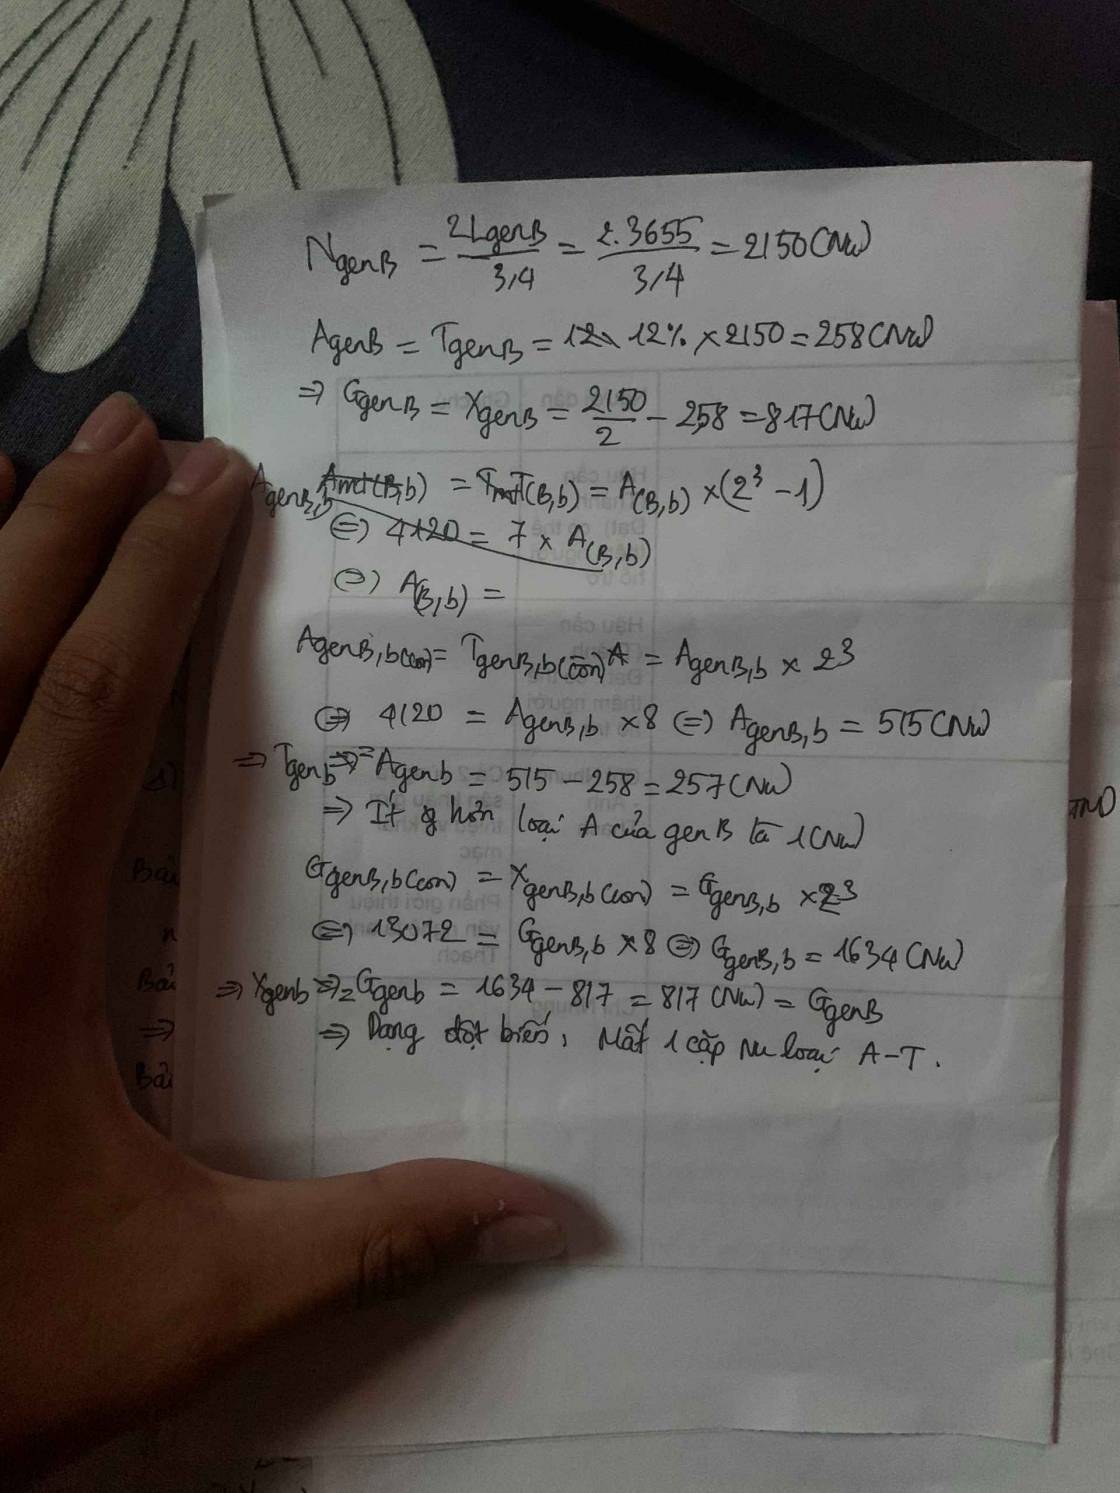 NgenB = 2LgenB / 3,4 = 2.3655 / 3,4 = 2150 (Nu)
AgenB = TgenB = 12% × 2150 = 258 (Nu)
⇒ GgenB = XgenB = 2150/2 - 258 = 817 (Nu)
AgenB,b = TmT(B,b) = A(B,b) × (2³ - 1)
⇔ 4120 = 7 × A(B,b)
⇔ A(B,b) =
AgenB,b(con) = TgenB,b(con) = AgenB,b × 2³
⇔ 4120 = AgenB,b × 8 ⇔ AgenB,b = 515 (Nu)
⇒ Tgenb = Agenb = 515 - 258 = 257 (Nu)
⇒ Ít hơn loại A của gen B là 1 (Nu)
GgenB,b(con) = XgenB,b(con) = GgenB,b × 2³
⇔ 13072 = GgenB,b × 8 ⇔ GgenB,b = 1634 (Nu)
⇒ Xgenb = Ggenb = 1634 - 817 = 817 (Nu) = GgenB
⇒ Dạng đột biến: Mất 1 cặp Nu loại A-T.